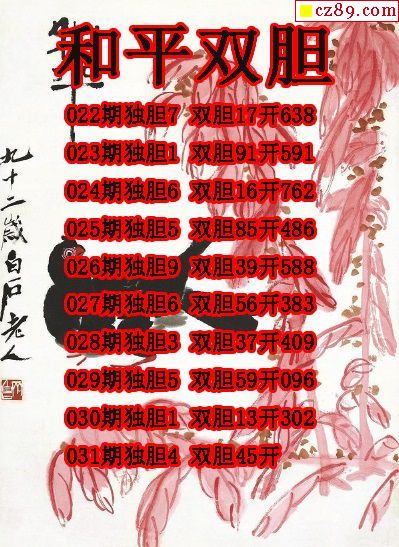 cz89.com
和平双胆
022期独胆7 双胆17开638
023期独胆1 双胆91开591
024期独胆6 双胆16开762
025期独胆5 双胆85开486
026期独胆9 双胆39开588
027期独胆6 双胆56开383
028期独胆3 双胆37开409
029期独胆5 双胆59开096
030期独胆1 双胆13开302
031期独胆4 双胆45开
九十二岁白石老人